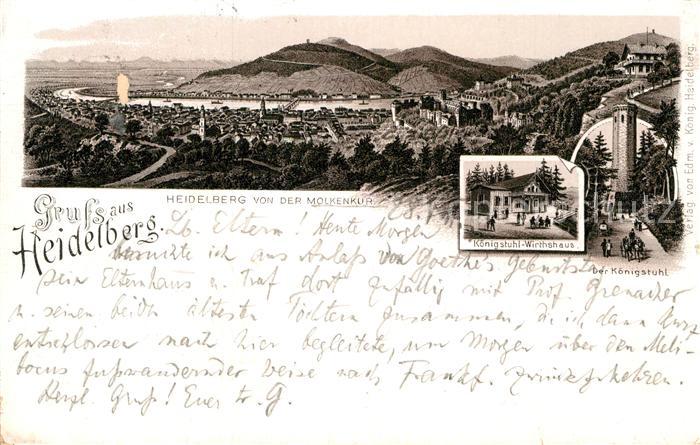 HEIDELBERG VON DER MOLKENKUR.
Königstuhl-Wirthshaus.
Der Königstuhl
Verlag von Edm. v. König, Heidelberg.
Gruß aus
Heidelberg.
Lb. Eltern! Heute Morgen
besuchte ich aus Anlaß von Goethe's Geburtstag
sein Elternhaus u. traf dort zufällig mit Prof. Grenacher
u. seinen beidn ältesten Töchtern zusammen, die ich dann kurz
entschlossen nach hier begleitete, um Morgen über den Meli-
bocus fußwandernder Weise nach Frankf. zurückzukehren.
Herzl. Gruß! Euer tr. G.